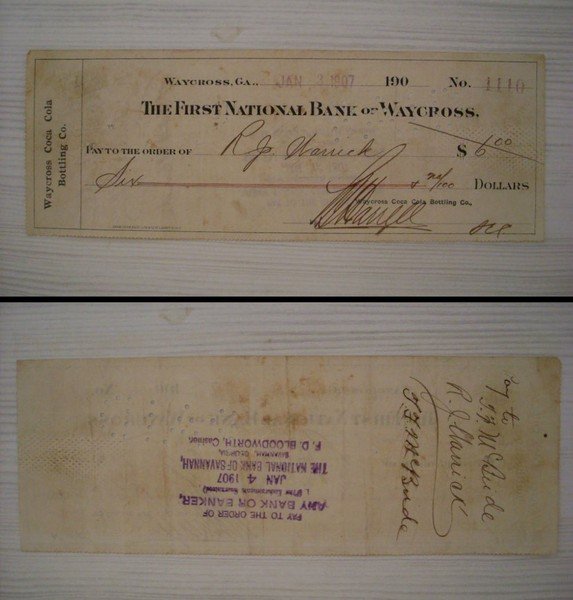 Waycross Coca Cola
Bottling Co.
WAYCROSS, GA., JAN 3 1907 190 No. 1110
THE FIRST NATIONAL BANK OF WAYCROSS,
PAY TO THE ORDER OF R J Warrick $ 6 00
Six & no/100 DOLLARS
Waycross Coca Cola Bottling Co.,
Pay to
T. F. McBride
R. J. Warrick
T F McBride
PAY TO THE ORDER OF
ANY BANK OR BANKER,
(Prior Endorsements Guaranteed)
JAN 4 1907
THE NATIONAL BANK OF SAVANNAH,
SAVANNAH, GEORGIA,
F. D. BLOODWORTH, Cashier.